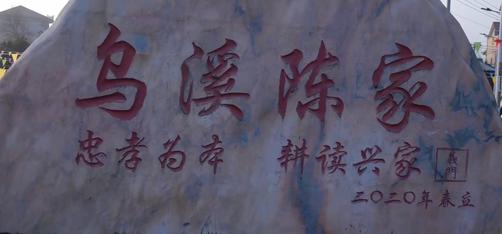 乌溪陈家
忠孝为本 耕读兴家
義門
二〇二〇年春立